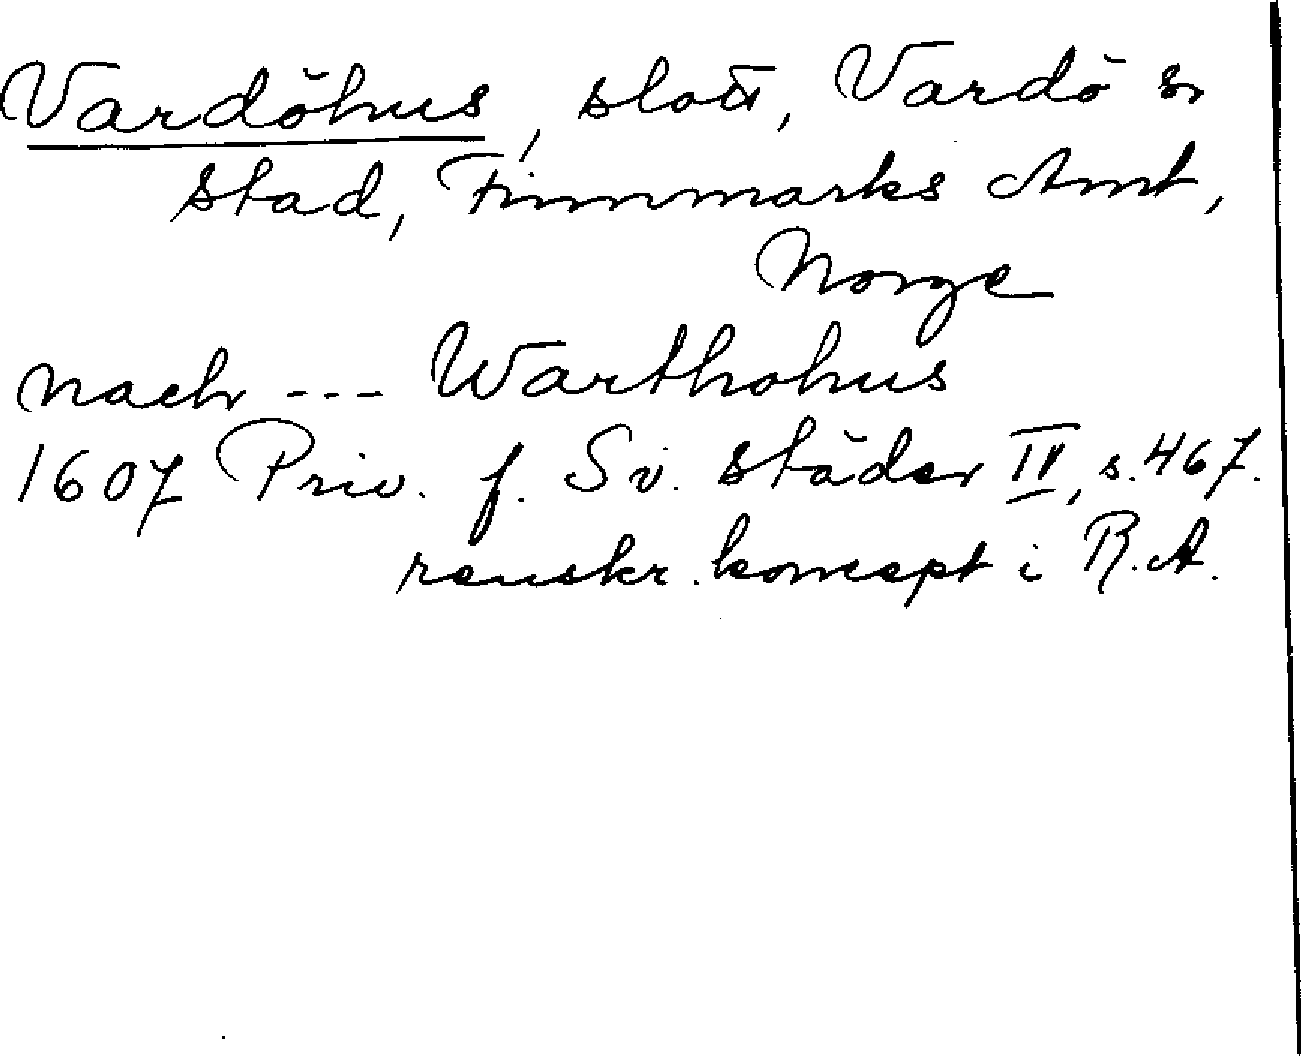 Vardöhus, slott, Vardö sn
stad, Finnmarks Amt,
Norge
nach --- Warthohus
1607 Priv. f. Sv. städer IV, s. 467.
renskr. koncept i R.A.